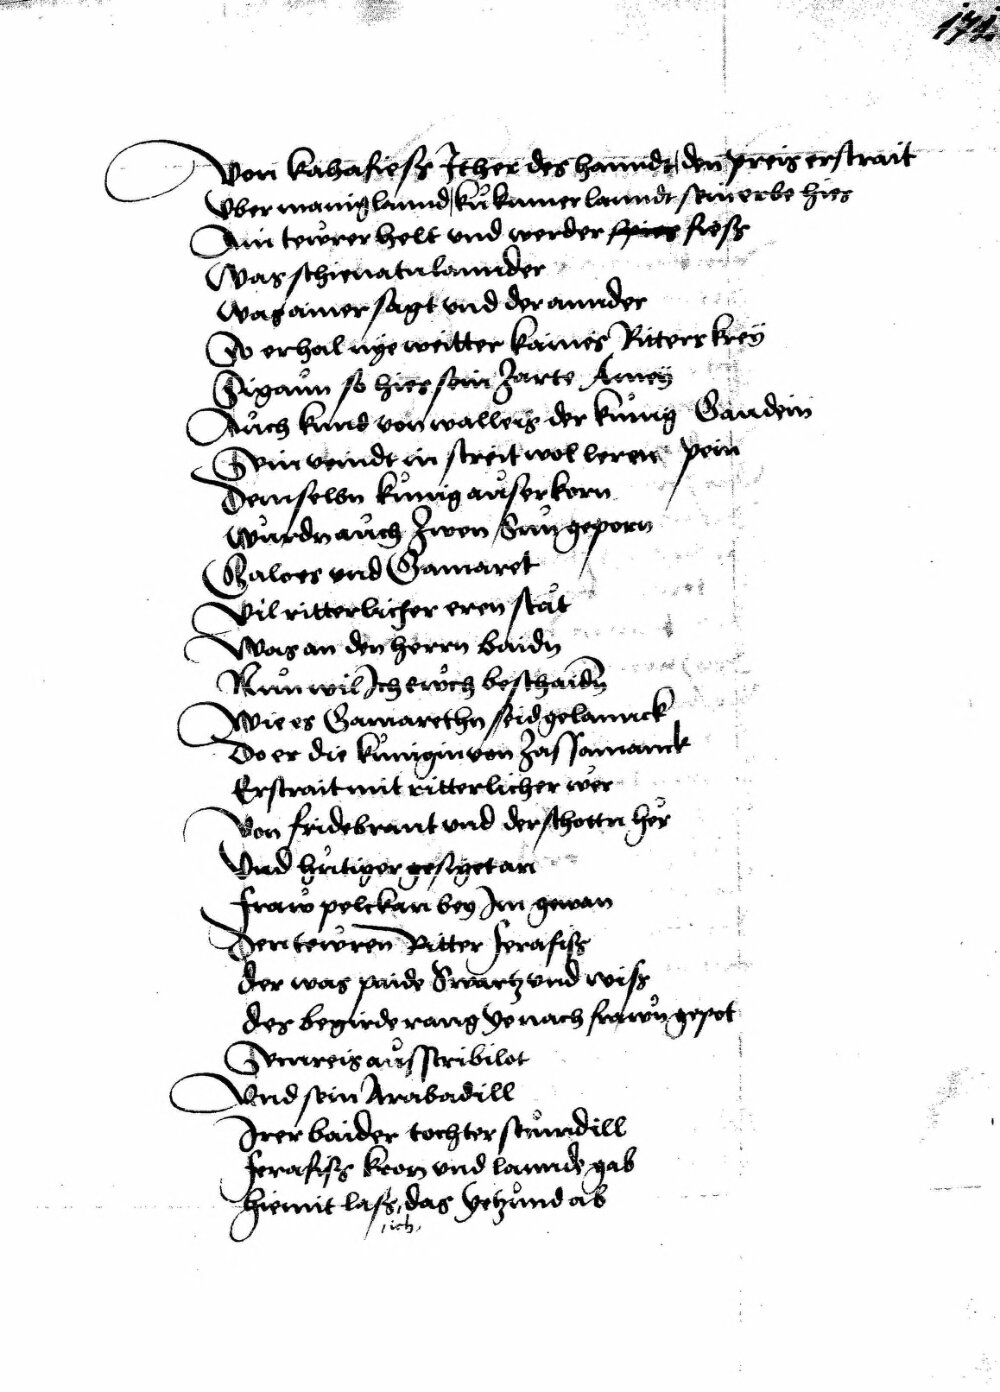 171.
Von kahafieß Ither des hanndt den preis erstrait
Vber manig lannd kukumer lanndt sein erbe hies
Ain tewrer helt vnd werder spies fieß
Was schienatulannder
Was ainer sagt vnd der annder
So erhal nye weitter kaines Ritters krey
Sigaun so hies sein zarte Amey
Auch kund von walleis der kunig Gandein
Sein veindt in streit wol leren pein
Demselbn kunig auserkorn
Wurdn auch zwen Sun geporn
Galoes vnd Gamaret
Vil ritterlicher eren stät
Was an den herrn baidn
Nun wil Ich ewch beschaidn
Wie es Gamarethn seid gelannck
Do er die kunigin von zassamanck
Erstrait mit ritterlicher wer
Von fridebrant vnd der schottn her
Vnd hutiger gesiget an
fraw pelckan bey Im gewan
Den tewren Ritter ferafiß
der was paide Swartz vnd wiß
des begirde rang ye nach frawn gepot
Sein reis aus Tribilot
Vnd sein Arabadill
Irer baider tochter Secundill
ferafiß kron vnd lannde gab
hiemit laß ich das yetzund ab